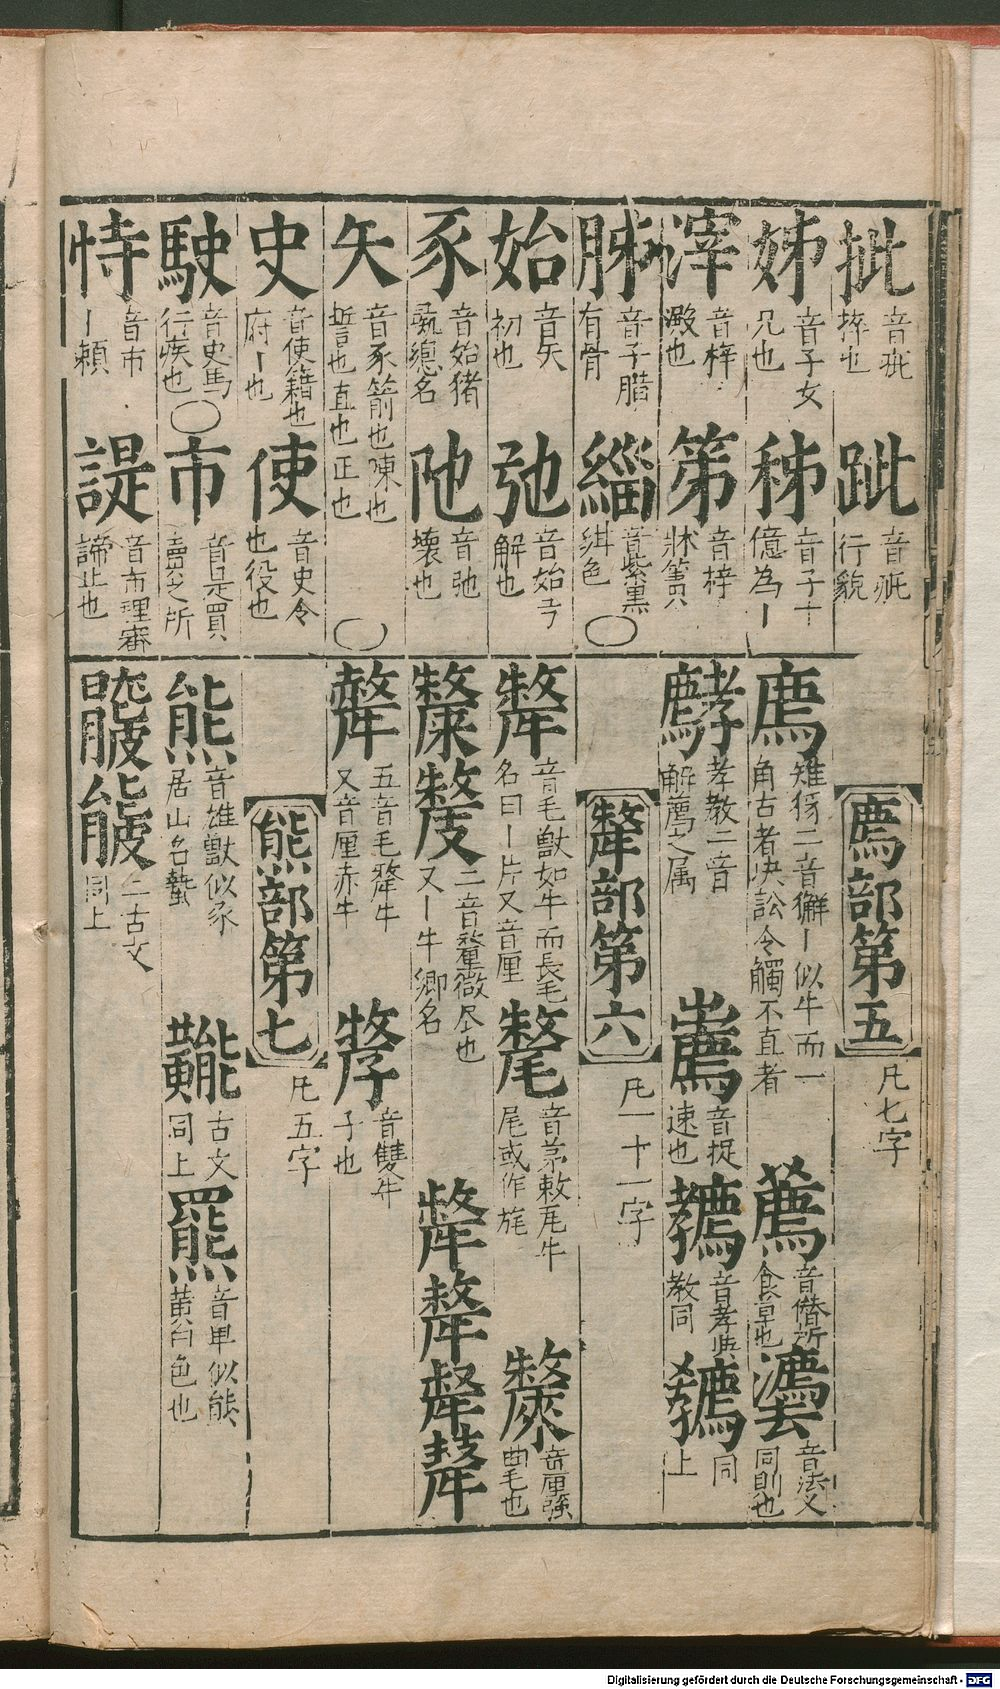 批 音疵 捽也 跐 音疵 行貌
姊 音子女兄也 秭 音子十億為丨
滓 音梓 澱也 笫 音梓 牀笫只
胏 音子腊有骨 緇 音紫黒緇色 〇
始 音矢 初也 弛 音始弓解也
豕 音始猪彘緫名 阤 音弛 壊也
矢 音豕箭也陳也誓也直也正也 〇
史 音使籍也府丨也 使 音史令也役也
駛 音史馬行疾也 〇 市 音是買賣之所
恃 音市 丨頼 諟 音市理審諦也
廌部第五 凡七字
廌 雉豸二音獬丨似牛而一角古者决訟令觸不直者 薦 音僣所食草也 灋 音法义同則也
孝教二音解廌之属 音捉速也 音孝與教同 同上
犛部第六 凡一十一字
犛 音毛獸如牛而長毛名曰丨片又音厘 氂 音茅敕厎牛尾或作旄 斄 音厘強曲毛也
二音氂微尽也又丨牛卿名
五音毛犛牛又音厘赤牛 音雙牛子也
熊部第七 凡五字
熊 音雄獸似豕居山名蟄 古文同上 羆 音畢似熊黄白色也
二古文同上
Digitalisierung gefördert durch die Deutsche Forschungsgemeinschaft - DFG